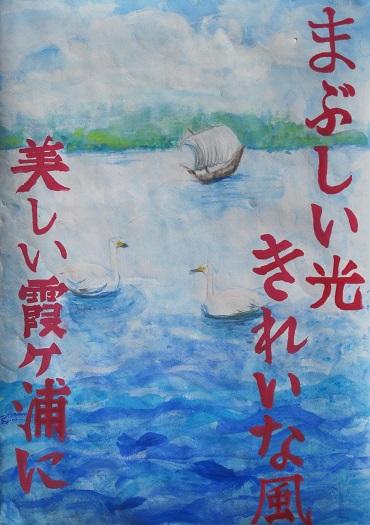 まぶしい光
きれいな風
美しい霞ヶ浦に